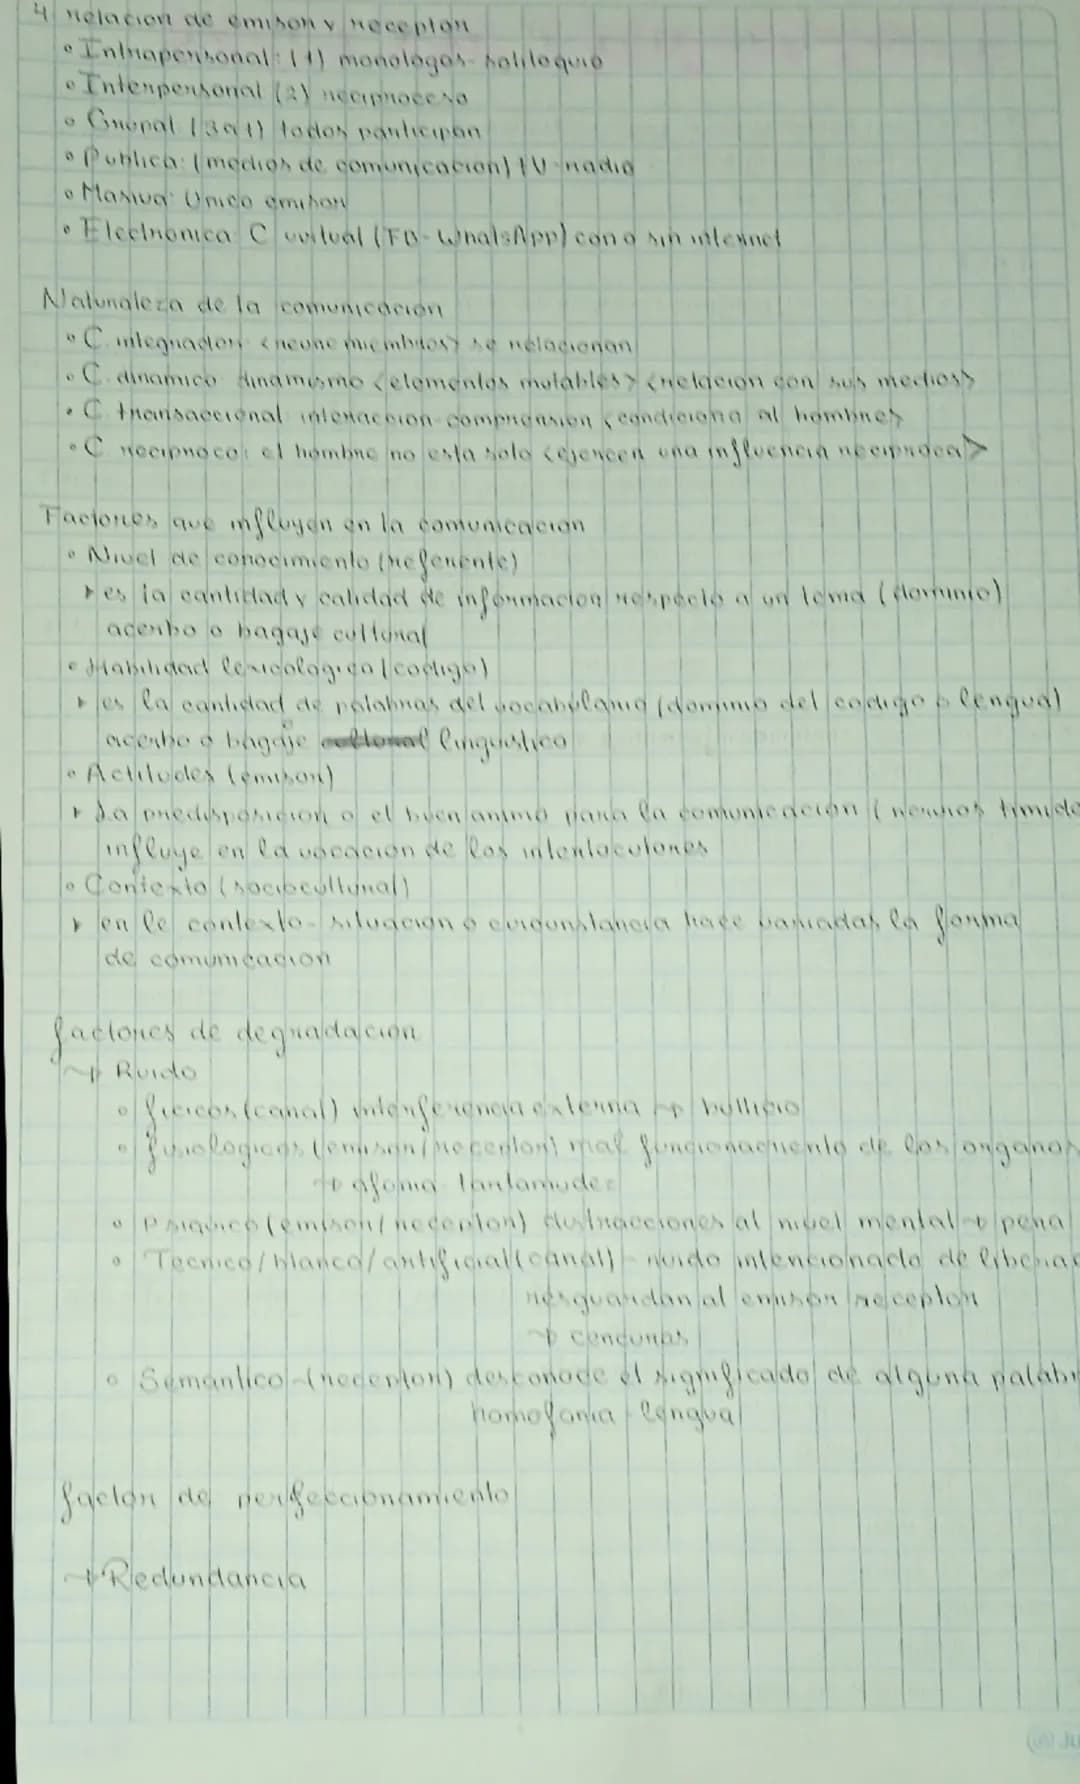 4 relacion de emisor y receptor
• Intrapersonal: (1) monologos - soliloquio
• Interpersonal (2) reciproceso
• Grupal (3 a +) todos participan
• Publica: (medios de comunicacion) TV - radio
• Masiva: Unico emisor
• Electronica C virtual (FB - WhatsApp) con o sin internet
Naturaleza de la comunicacion
• C. integrador: <reune miembros> se relacionan
• C. dinamico dinamismo <elementos mutables> <relacion con sus medios>
• C transaccional interaccion - comprension <condiciona al hombre>
• C reciproco: el hombre no esta solo <ejercen una influencia reciproca>
Factores que influyen en la comunicacion
• Nivel de conocimiento (referente)
▸ es la cantidad y calidad de informacion respecto a un tema (dominio)
acerbo o bagaje cultural
• Habilidad lexicologica (codigo)
▸ es la cantidad de palabras del vocabulario (dominio del codigo o lengua)
acerbo o bagaje linguistico
• Actitudes (emisor)
▸ La predisposicion o el buen animo para la comunicacion (nervios timide
influye en la vocacion de los interlocutores
• Contexto (sociocultural)
▸ en le contexto - situacion o circunstancia hace variadas la forma
de comunicacion
factores de degradacion
→ Ruido
• ficicos (canal) interferencia externa → bullicio
• fisiologicos (emisor/receptor) mal funcionamiento de los organos
→ afonia tartamudez
• Psiquico (emisor/receptor) distracciones al nivel mental → pena
• Tecnico/blanco/artificial (canal) - ruido intencionado de
resguardan al emisor receptor
→ cencuras
• Semantico - (receptor) desconoce el significado de alguna palabr
homofonia - lengua
factor de perfeccionamiento
→ Redundancia